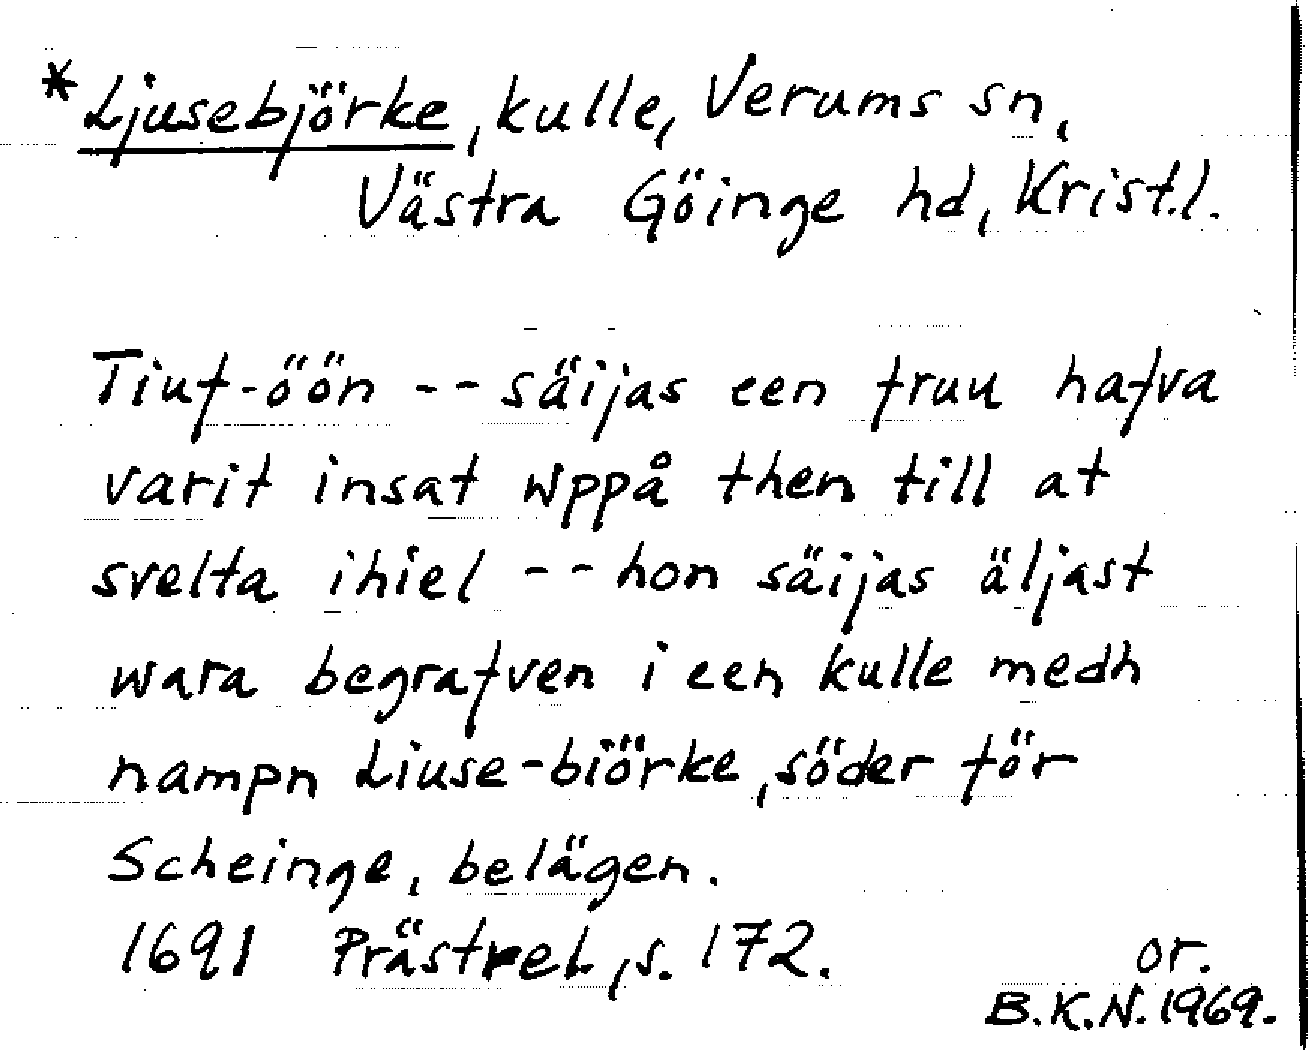 *Ljusebjörke, kulle, Verums sn,
Västra Göinge hd, Krist.l.
Tiuf-öön -- säijas een fruu hafva
varit insat wppå then till at
svelta ihiel -- hon säijas äljast
wara begrafven i een kulle medh
nampn Liuse-biörke, söder för
Scheinge, belägen.
1691 Prästrel., s. 172. or.
B.K.N. 1969.